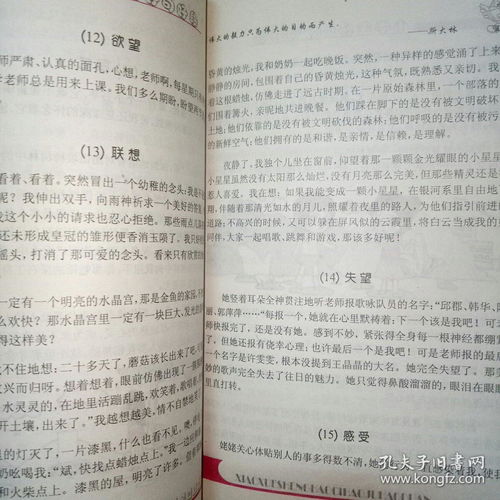 (12) 欲望
师严肃、认真的面孔，心想，老师啊，每星期
老师总是用来上课。我们多么期盼，盼望
(13) 联想
看着、看着。突然冒出一个幼稚的念头：我是
呢？我伸出双手，向雨神祈求一个美好的
我这个小小的请求也忍心拒绝。那些雨点儿
还未形成皇冠的雏形便香消玉陨了。我只
摇头，打消了那可爱的念头。看来只有欣赏
一定有一个明亮的水晶宫，那是金鱼的家园，不
么欢快？那水晶宫里一定有一块巨大、发光的
得这样美？
不住地想：二十多天了，蘑菇该长出来了吧
致兴而归呀。想着想着，眼前仿佛出现了一
水灵灵的，在地里活蹦乱跳，欢笑着，歌唱着
开土壤，出来了。“我越想越美，情不自禁地
的灯灭了，一片漆黑，什么也看不见，噢，
奶吆喝我：“斌，快找点蜡烛点上。”我一边应
和火柴点上。漆黑的屋，明亮了许多。
伟大的毅力只为伟大的目的而产生。
——斯大林
昏黄的烛光，我和奶奶一起吃晚饭。突然，一种异样的感觉涌了上来
的房间内，包围着自己的昏黄烛光，这种气氛，既熟悉又亲切。我
着这根蜡烛，仿佛走进了远古时期。在一片原始森林里，一个部落的
们围着篝火，亲昵地共进晚餐。他们踩在脚下的是没有被文明破坏
土地；他们依靠的是没有被文明砍伐的森林；他们呼吸的是没有被污
的新鲜空气；他们拥有的是和谐，是亲情，是信赖，是理解。
夜静了，我独个儿坐在窗前，仰望着那一颗颗金光耀眼的小星星
小星星虽然没有太阳那么灿烂、没有月亮那么完美，但那些精灵还是
惹人喜爱，我在想：如果我能变成一颗小星星，在银河系里自由地
期，伴随着那清光如水的月儿，照耀着夜里的路人，为他们指引前进
道路；不高兴的时候，又可以躲在屏风似的云霞里，将白云当成我的
同伴，大家一起唱歌、跳舞和游戏，那该多好呢！
(14) 失望
她竖着耳朵全神贯注地听老师报歌咏队员的名字：“邱郡、韩华、
丽、郭萍萍……”每报一个，她就在心里默祷着：下一个该是我吧！可是
师快报完了，还是没有她。感到不妙，紧张得全身每一根神经都好像
了。但她还报有侥幸心理；也许最后一个是我吧！可是老师报的最后
一个名字是许雯雯，根本没提到王晶晶的大名。她完全失望了。那美
妙的歌声完全失去了往日的魅力。她只觉得鼻酸溜溜的，眼泪在眼眶
里直打转。
(15) 感受
姥姥关心体贴别人的事多得数不清，她
XIAOXUESHENGHAOCIHAOJUHAODUAN
孔夫子旧书网